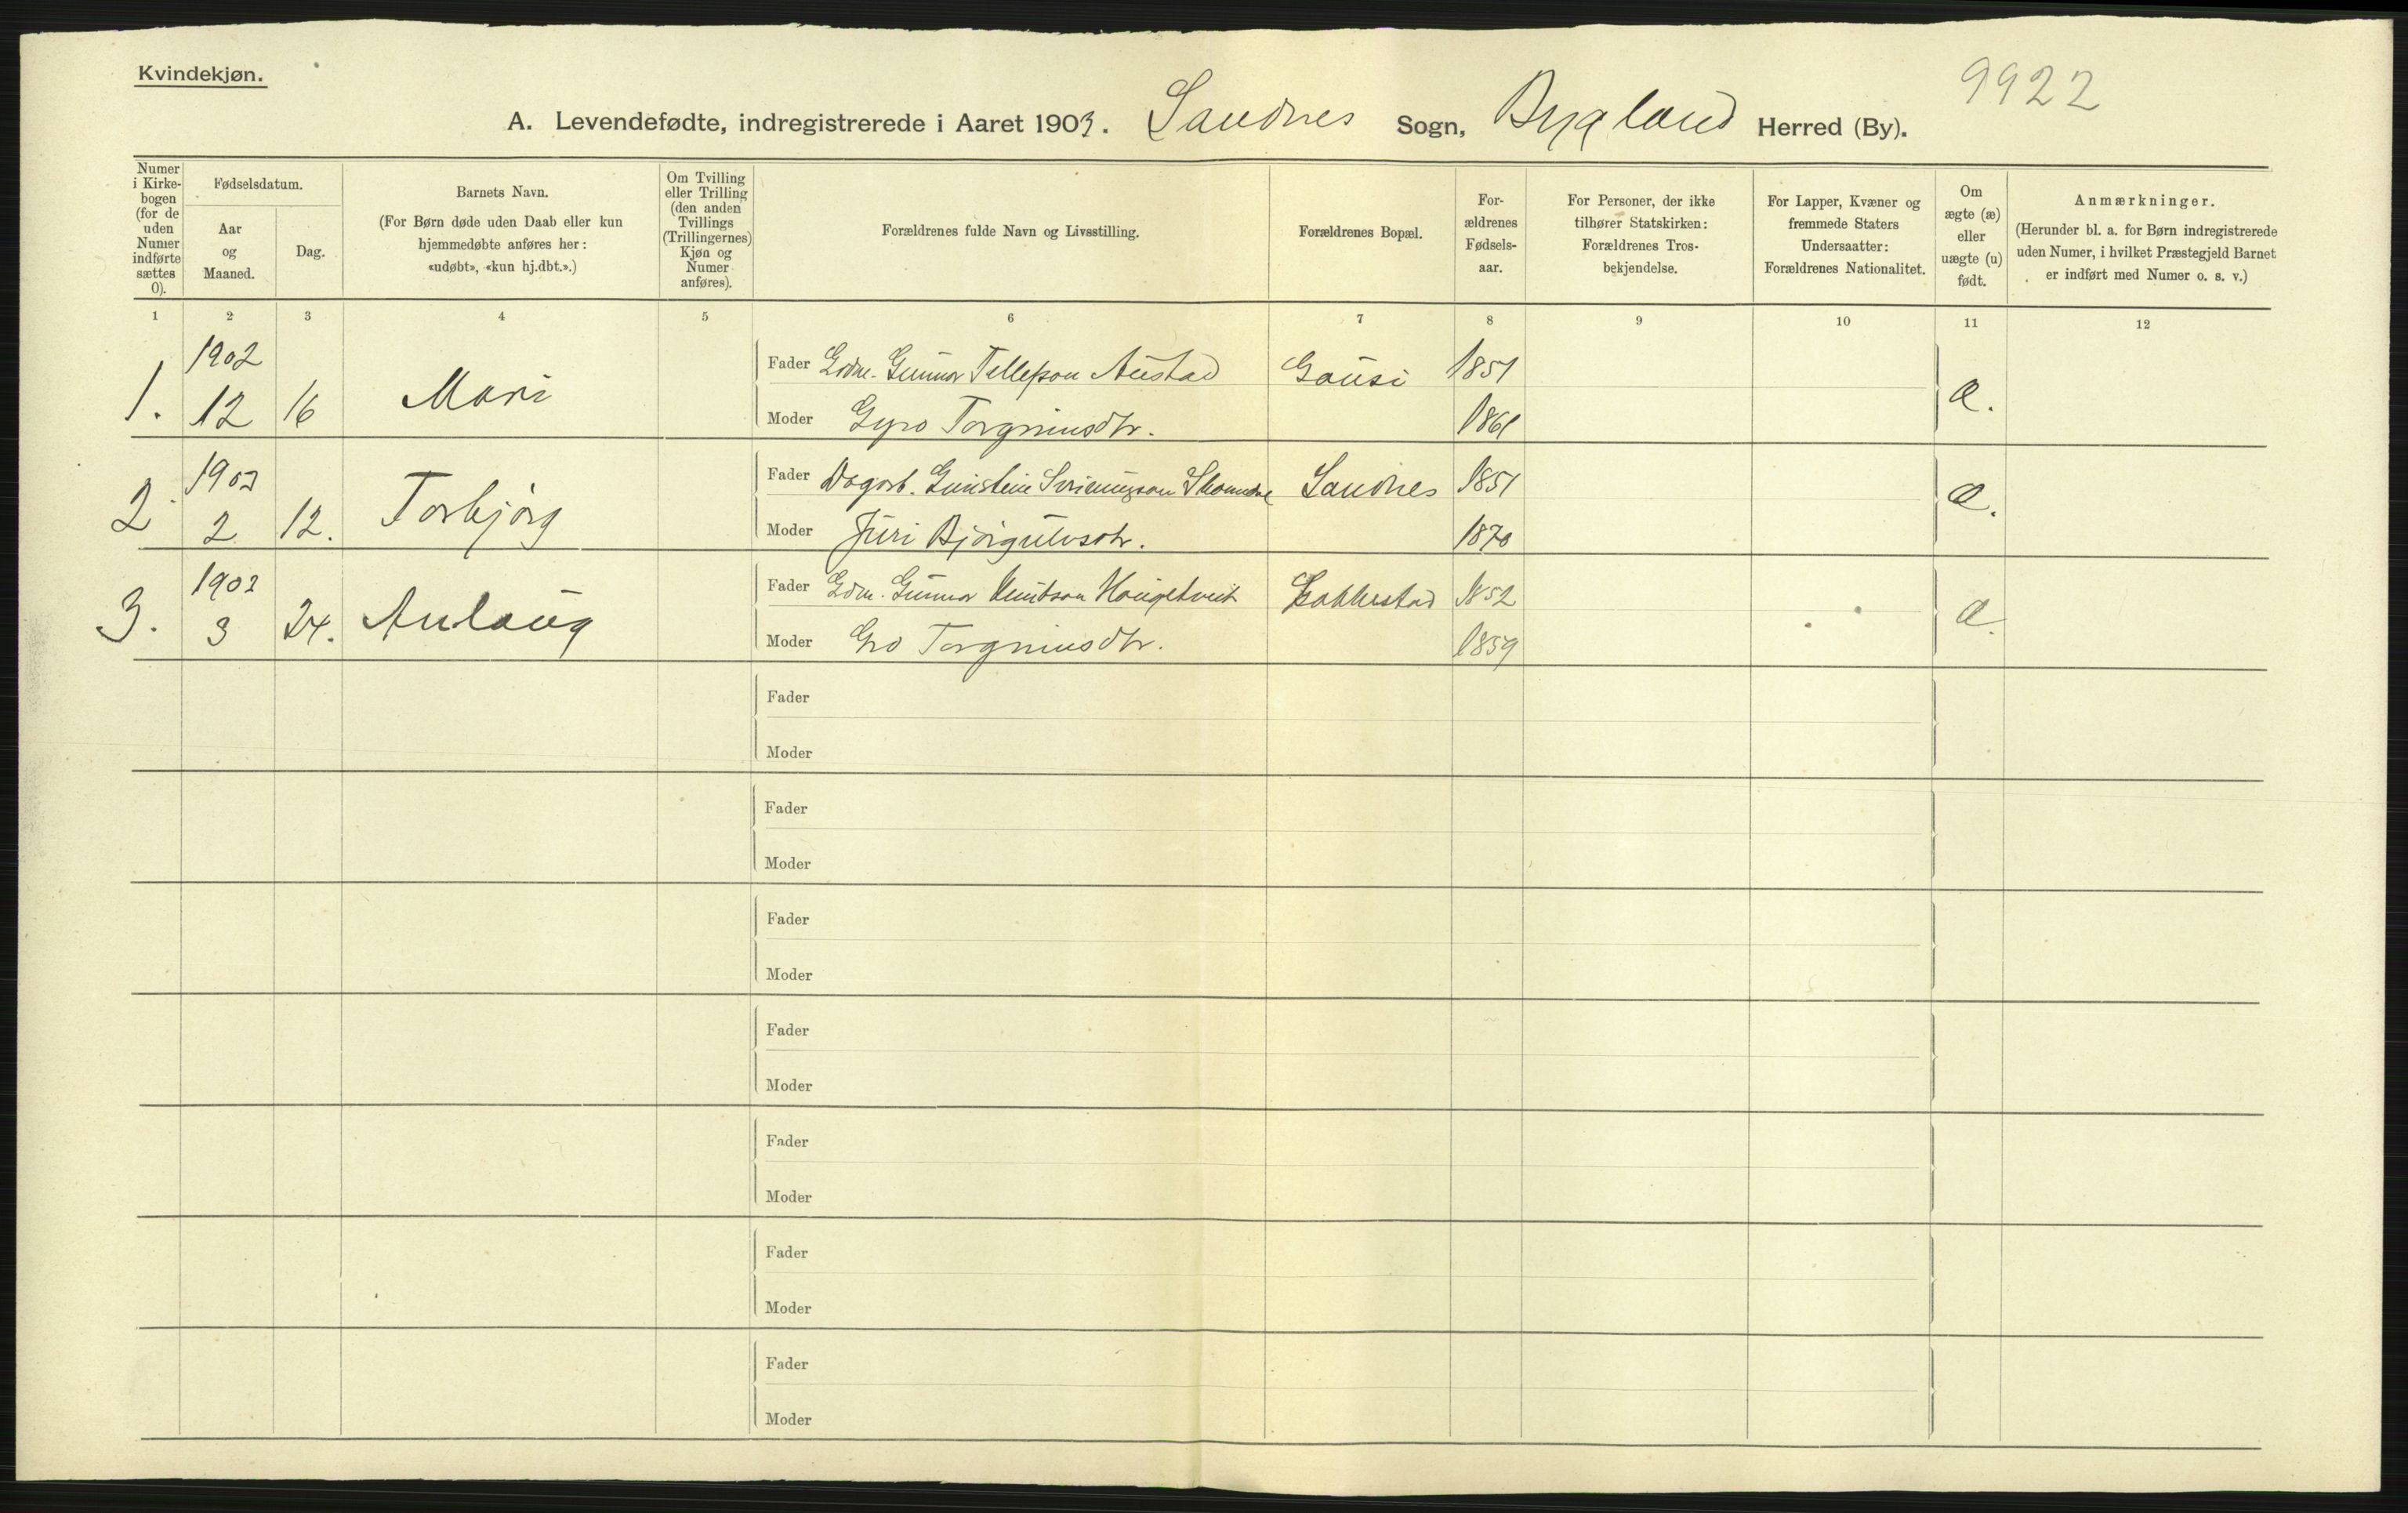 Kvindekjøn.
9922
A. Levendefødte, indregistrerede i Aaret 1903. Sandnes Sogn, Bygland Herred (By).
Numer i Kirkebogen (for de uden Numer indførte sættes 0).
Fødselsdatum.
Aar og Maaned.
Dag.
Barnets Navn.
(For Børn døde uden Daab eller kun
hjemmedøbte anføres her:
«udøbt», «kun hj.dbt.».)
Om Tvilling
eller Trilling
(den anden
Tvillings
(Trillingernes)
Kjøn og
Numer
anføres).
Forældrenes fulde Navn og Livsstilling.
Forældrenes Bopæl.
For-
ældrenes
Fødsels-
aar.
For Personer, der ikke
tilhører Statskirken:
Forældrenes Tros-
bekjendelse.
For Lapper, Kvæner og
fremmede Staters
Undersaatter:
Forældrenes Nationalitet.
Om
ægte (æ)
eller
uægte (u)
født.
Anmærkninger.
(Herunder bl. a. for Børn indregistrerede
uden Numer, i hvilket Præstegjeld Barnet
er indført med Numer o. s. v.)
1 2 3 4 5 6 7 8 9 10 11 12
1902
Fader Gdm. Gunnar Tellefson Austad Gausi 1851
1. 12 16 Mari æ.
Moder Gyro Torgrimsdtr. 1861
1903
Fader Dagarb. Gunstein Skomedal Sandnes 1851
2. 2 12. Torbjörg æ.
Moder Juri Björgulvsdtr. 1870
1903
Fader Gdm. Gunnar Knutson Haugetveit Lakkestad 1852
3. 3 24. Anlaug æ.
Moder Gro Torgrimsdtr. 1859
Fader
Moder
Fader
Moder
Fader
Moder
Fader
Moder
Fader
Moder
Fader
Moder
Fader
Moder